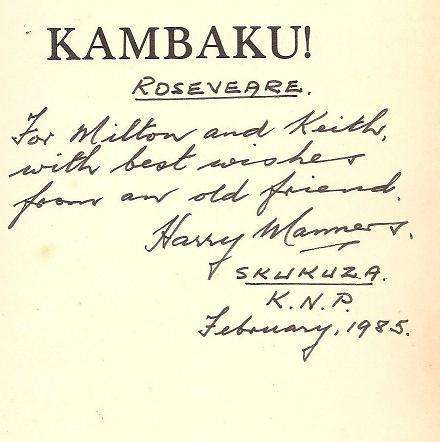 KAMBAKU!
ROSEVEARE.
For Milton and Keith,
with best wishes
from an old friend.
Harry Manners.
SKUKUZA.
K.N.P.
February, 1985.